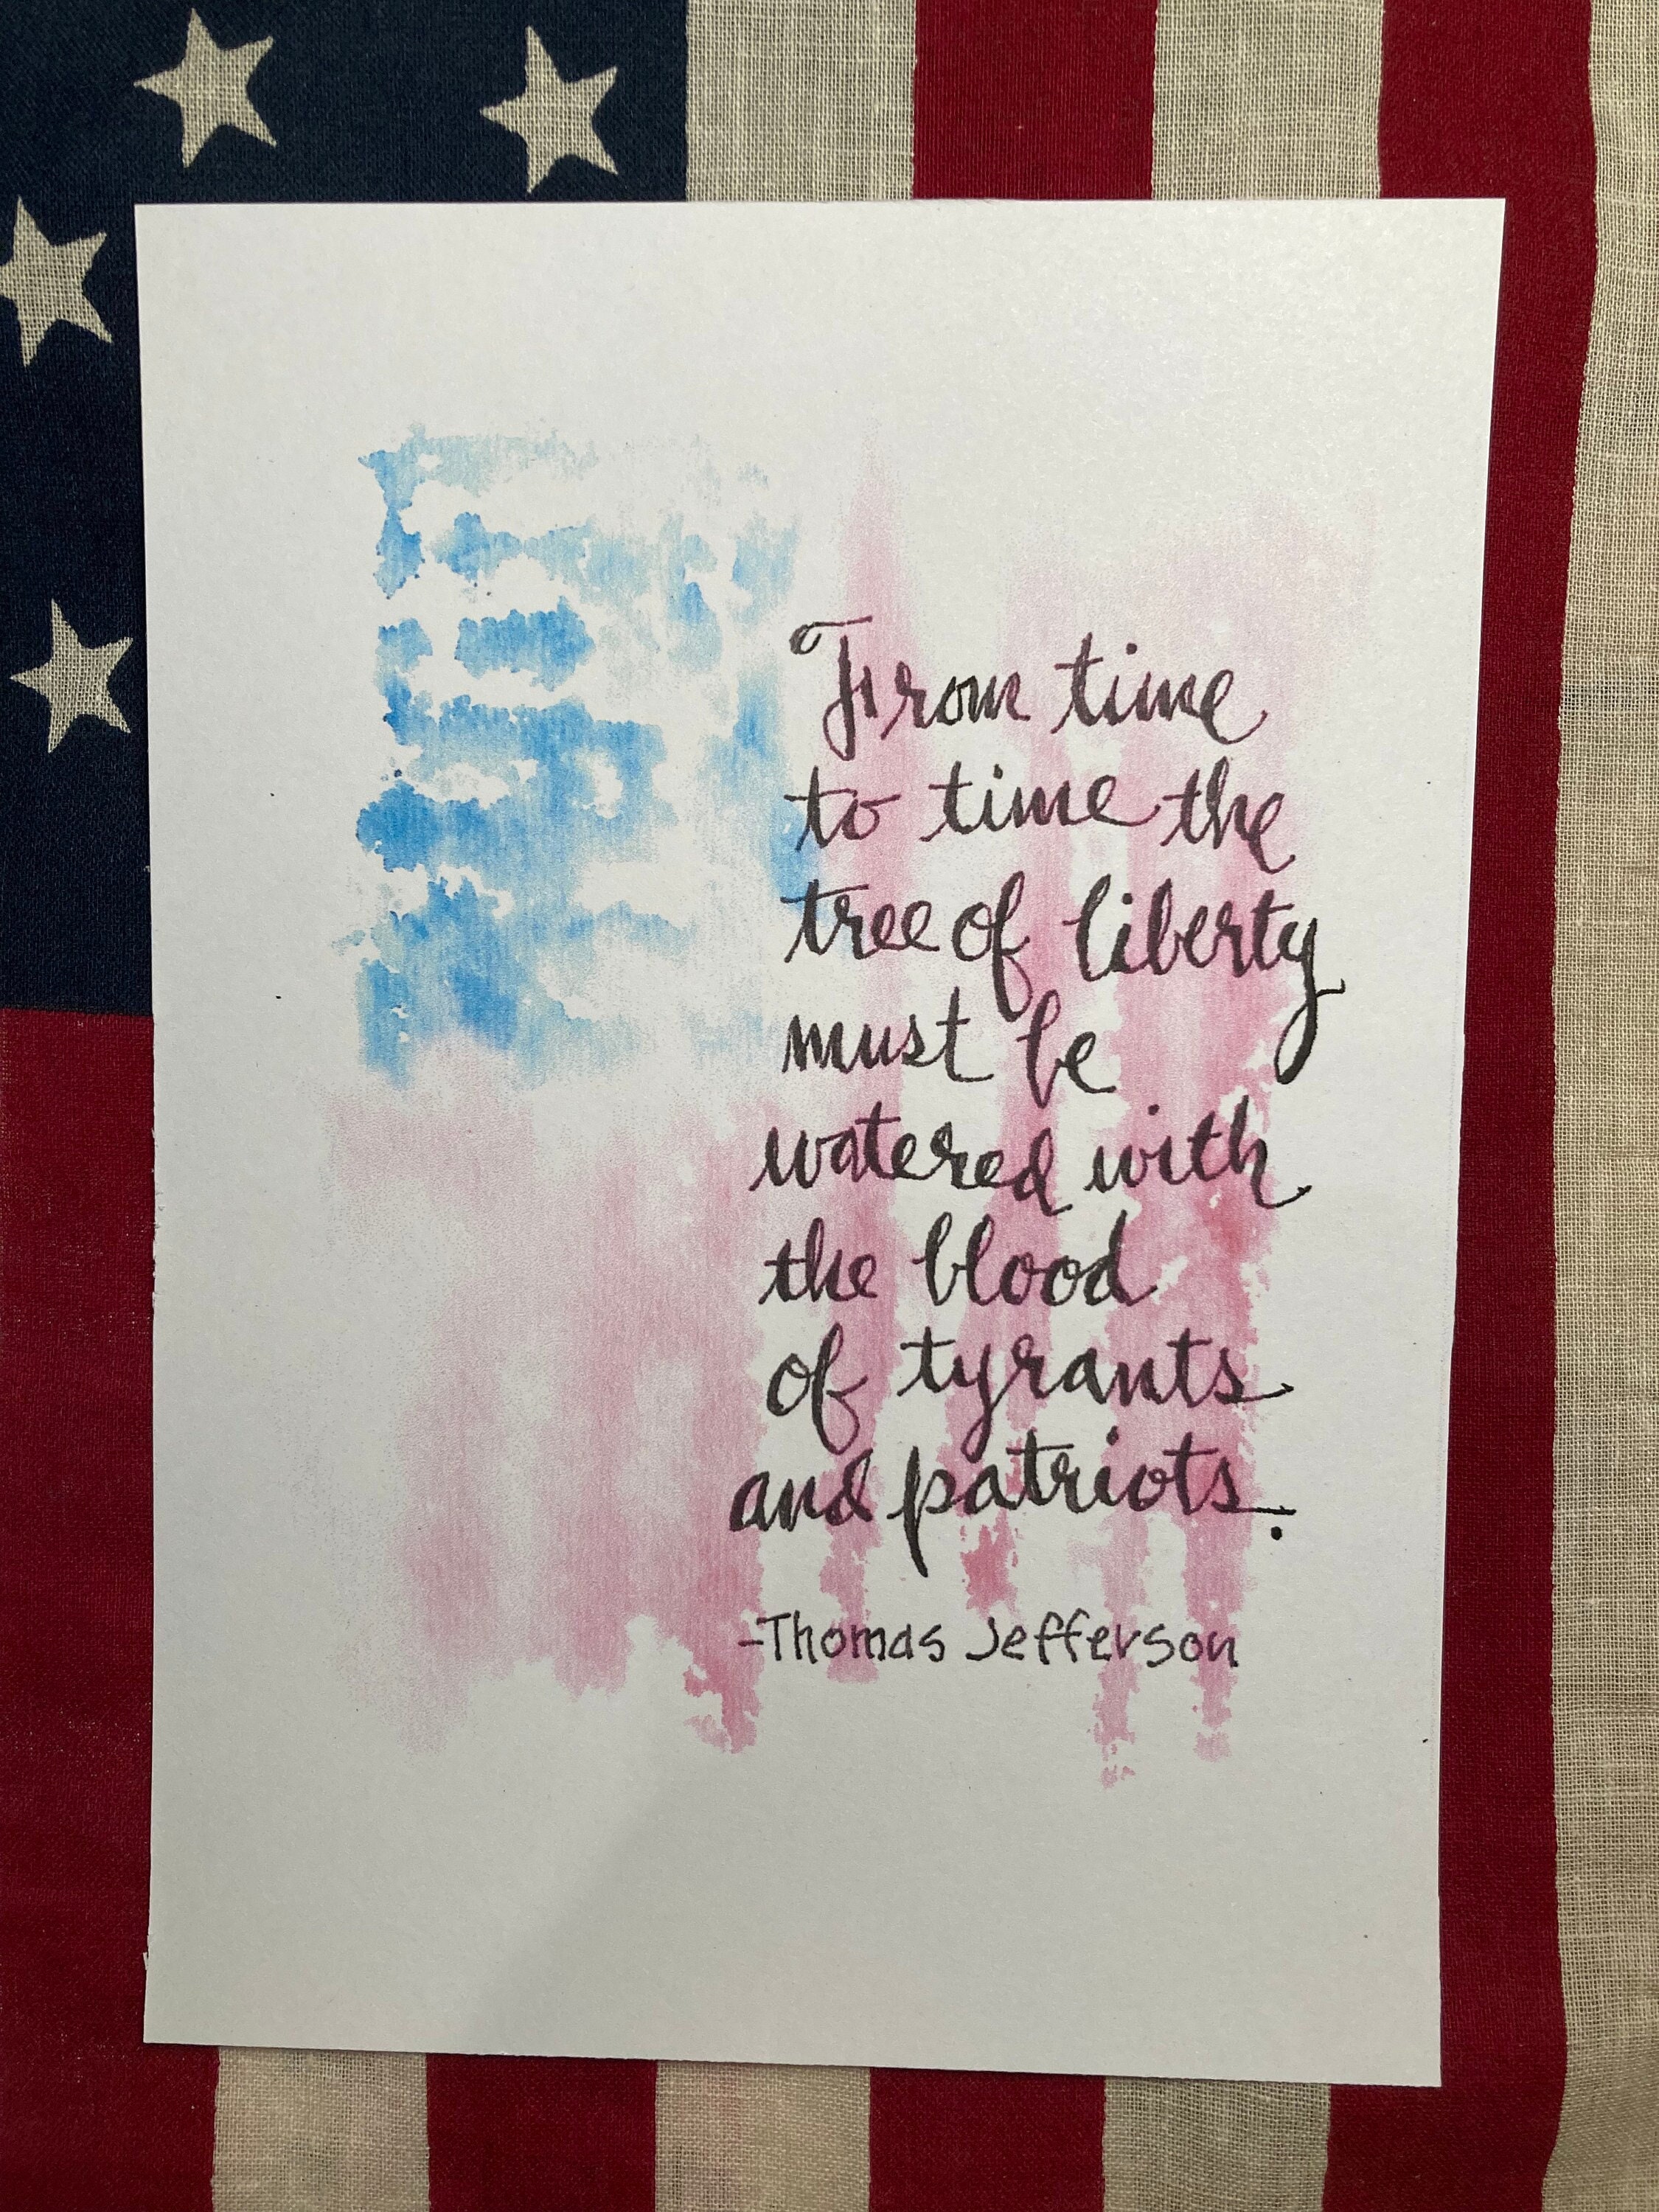 From time
to time the
tree of liberty
must be
watered with
the blood
of tyrants
and patriots.
-Thomas Jefferson